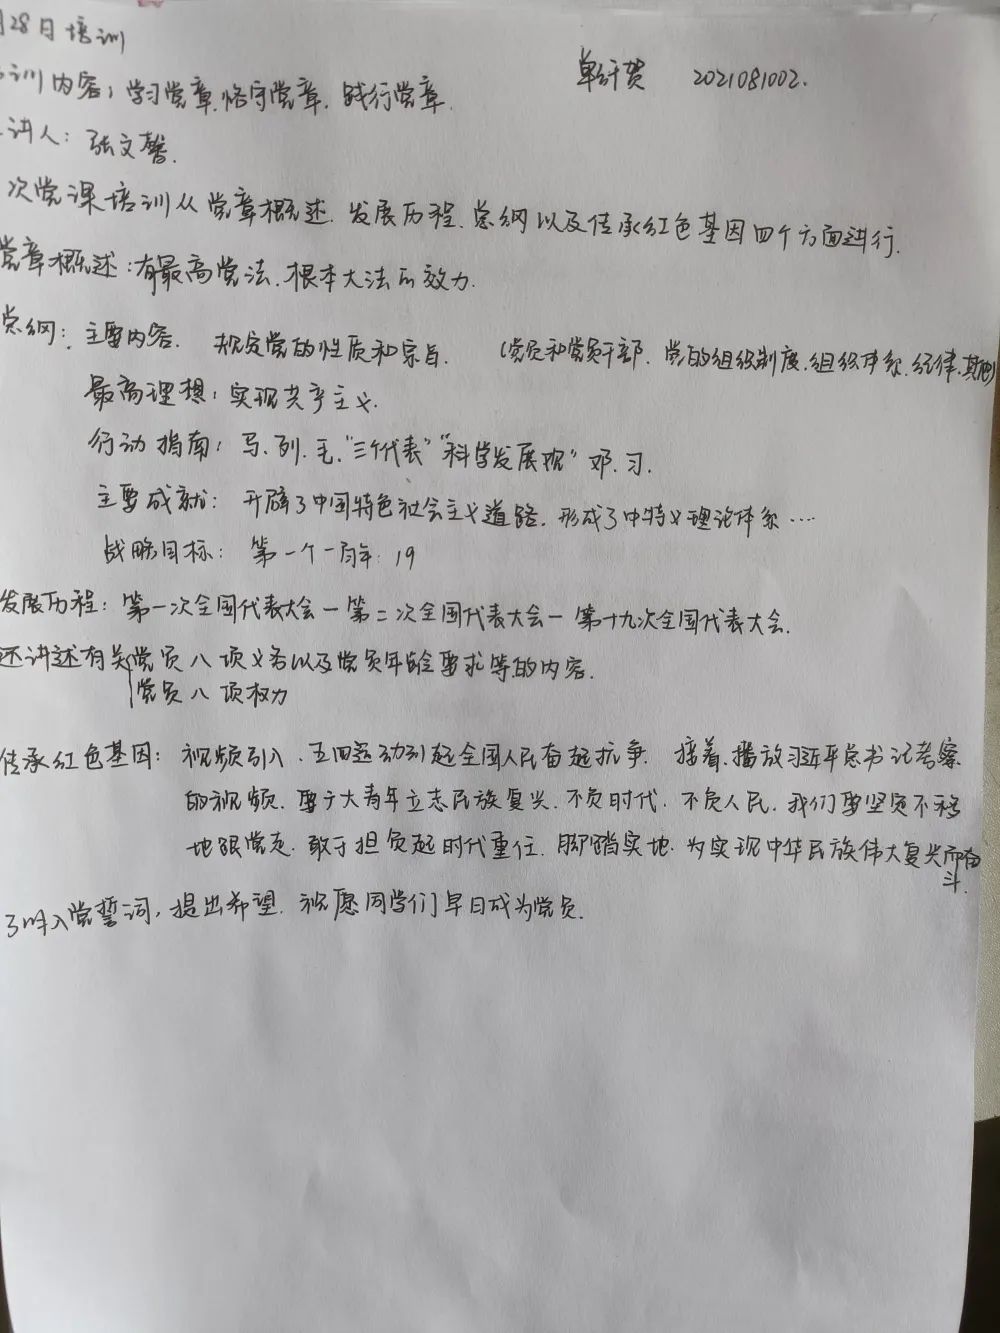 月28日培训
训内容：学习党章、恪守党章、践行党章.
单纤贺 2021081002.
讲人：张文馨.
次党课培训从党章概述、发展历程、总纲以及传承红色基因四个方面进行.
党章概述：有最高党法、根本大法的效力.
总纲：主要内容. 规定党的性质和宗旨. (党员和党员干部、党的组织制度、组织体系、纪律、其他)
最高理想：实现共产主义.
行动指南：马、列、毛、“三个代表”“科学发展观”邓、习.
主要成就：开辟了中国特色社会主义道路、形成了中特义理论体系…
战略目标：第一个一百年：19
发展历程：第一次全国代表大会—第二次全国代表大会—第十九次全国代表大会.
还讲述有关党员八项义务以及党员年龄要求等的内容.
党员八项权力
传承红色基因：视频引入、五四运动引起全国人民奋起抗争. 接着、播放习近平总书记考察
的视频、要广大青年立志民族复兴、不负时代、不负人民、我们要坚定不移
地跟党走、敢于担负起时代重任、脚踏实地、为实现中华民族伟大复兴而奋
斗.
入党誓词，提出希望、祝愿同学们早日成为党员.